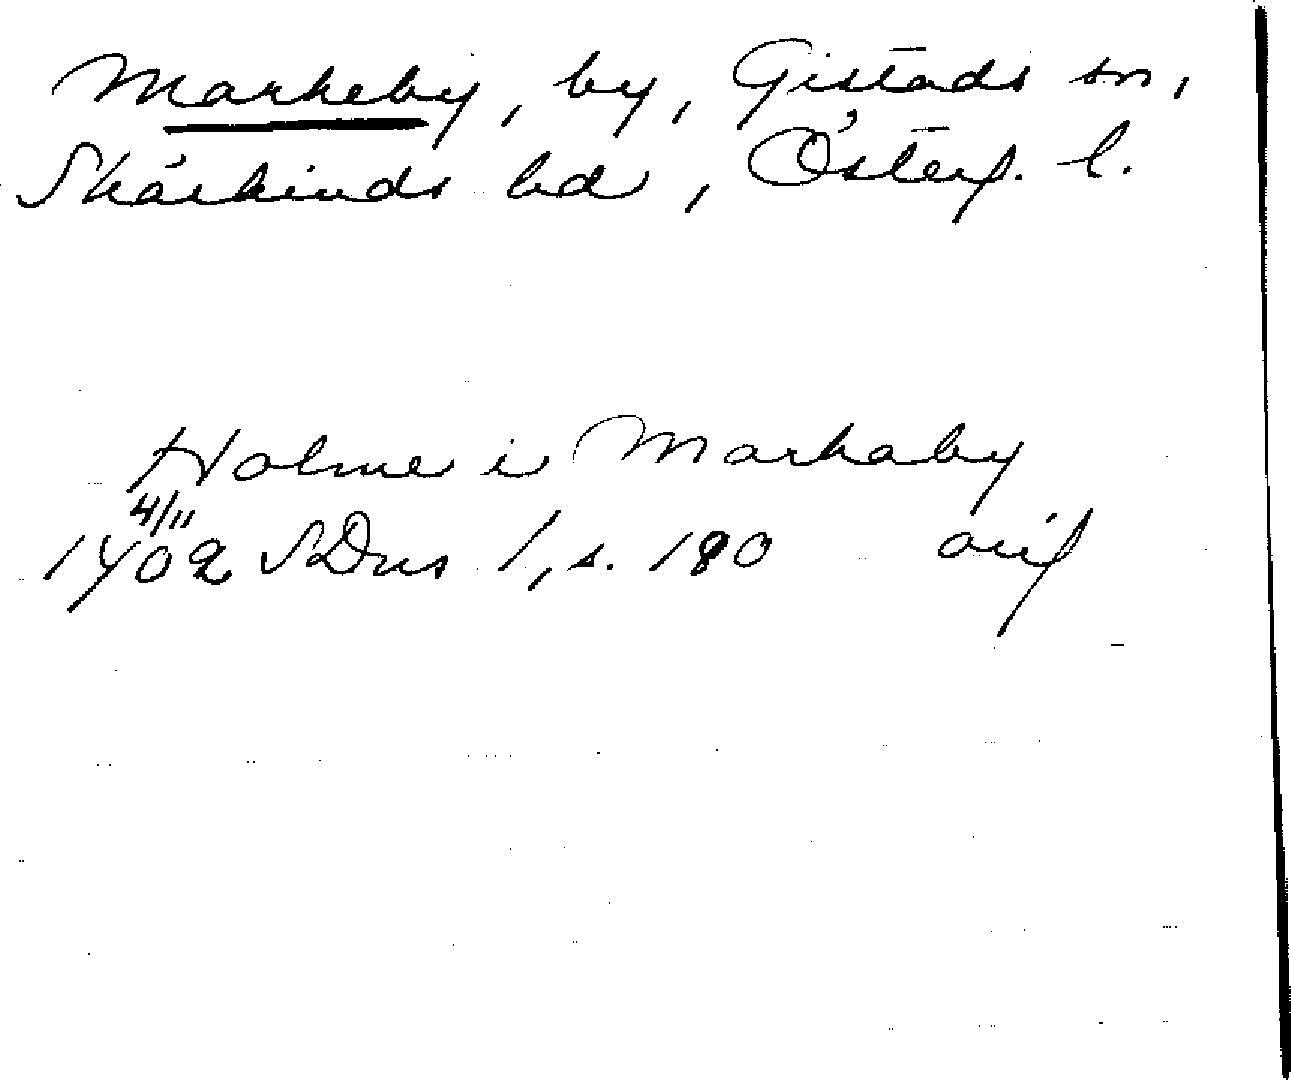 Markeby, by, Gistads sn,
Skärkinds hd, Österg. l.
Holme i Markaby
4/11
1402 SDns 1, s. 180 orig